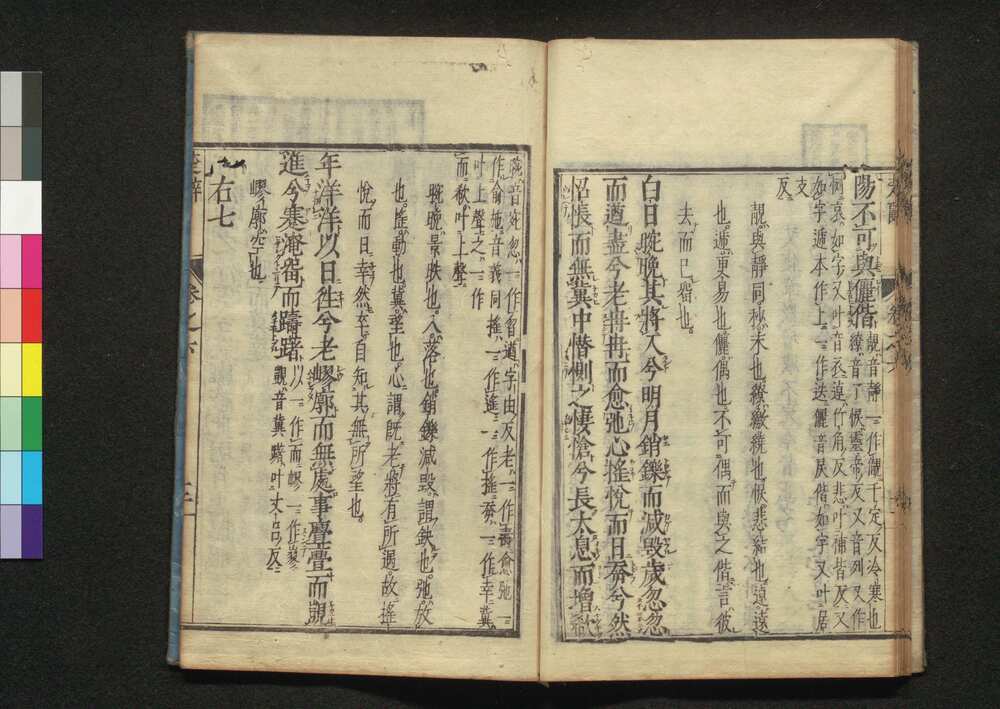 陽不可與儷偕 靚音靜一作靚千定反冷寒也
繚音了悷靈帝反又音列又作
何哀如字又叶音衣逴竹角反悲叶補皆反又
如字遞本作上一作迭儷音戾偕如字又叶居
支
反
靚與靜同秋末也繚繞也悷悲結也逴遠
也遞更易也儷偶也不可偶而與之偕言彼
去而已留也
白日晼晚其將入兮明月銷鑠而減毀歲忽忽
而遒盡兮老冉冉而愈弛心搖悅而日幸兮然
怊悵而無冀中憯惻之悽愴兮長太息而增欷
晼音宛忽一作曶遒字由反老一作耆愈弛一
作俞施音義同搖一作遙一作搖幸一作幸冀
叶上聲之一作
而欷叶上聲
晼晚景昳也入落也銷鑠減毀謂缺也弛放
也搖動也冀望也心謂既老將有所遇故搖
悅而日幸然卒自知其無所望也
年洋洋以日往兮老嵺廓而無處事亹亹而覬
進兮蹇淹留而躊躇 以一作而嵺一作寥
覬音冀躇叶丈呂反
嵺廓空也
右七
楚辭 卷之六